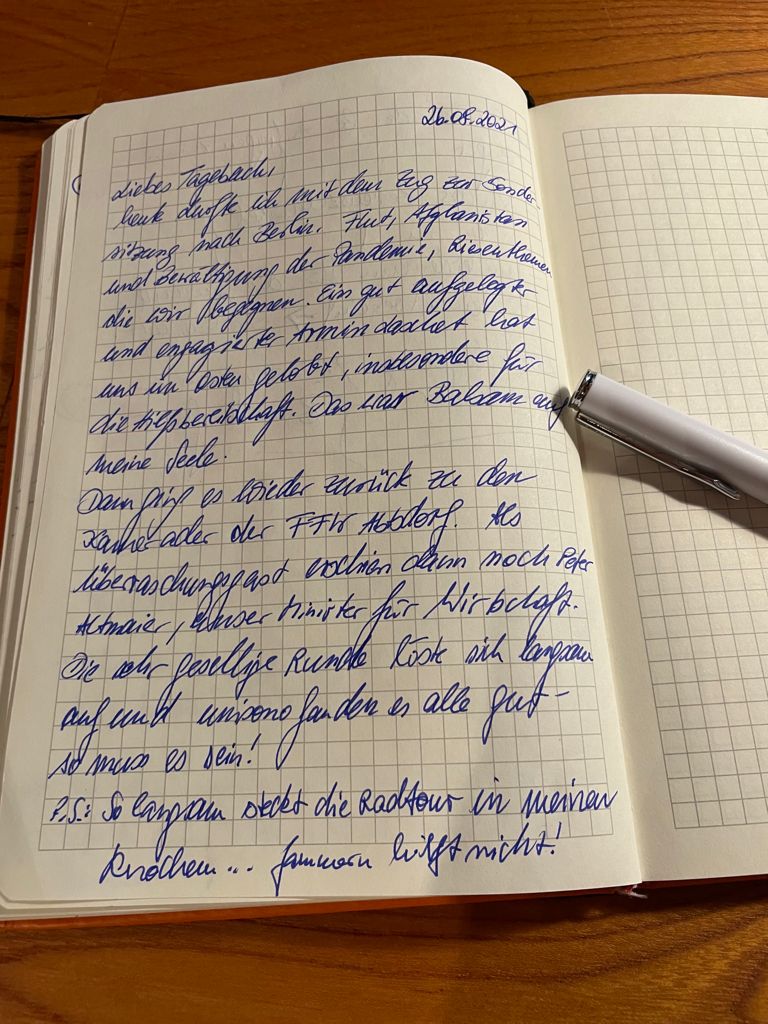 26.08.2021
Liebes Tagebuch,
heute durfte ich mit dem Zug zur Sonder-
sitzung nach Berlin. Flut, Afghanistan
und Bewältigung der Pandemie, Riesenthemen
die wir begegnen. Ein gut aufgelegter
und engagierter Armin Laschet hat
uns im Osten gelobt, insbesondere für
die Impfbereitschaft. Das war Balsam auf
meine Seele.
Dann ging es wieder zurück zu den
Kameraden der FFW Abtsdorf. Als
Überraschungsgast erschien dann noch Peter
Altmaier, unser Minister für Wirtschaft.
Die sehr gesellige Runde löste sich langsam
auf und unisono fanden es alle gut –
so muss es sein!
P.S.: So langsam steckt die Radtour in meinen
Knochen... Jammern hilft nicht!